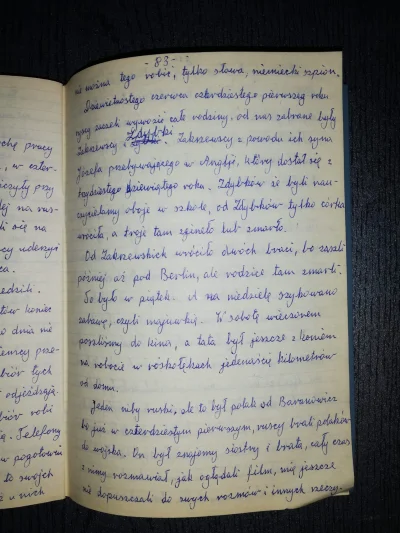 - 83 -
nie można tego robić, tylko słowa, niemiecki szpion.
Dziewiętnastego czerwca czterdziestego pierwszego roku
ruscy zaczeli wywozić całe rodziny, od nas zabrane były
Zakrzewscy i Zdybki. Zakrzewscy z powodu ich syna
Józefa przebywającego w Anglji, który dostał się z
trzydziestego dziewiątego roku. Zdybków że byli nau-
czycielami oboje w szkole, od Zdybków tylko córka
wróciła, a troje tam zgineło lub zmarło.
Od Zakrzewskich wróciło dwóch braci, bo zaszli
później aż pod Berlin, ale rodzice tam zmarli.
To było w piątek. A na niedzielę szykowano
zabawę, czyli majówkę. W sobotę wieczorem
poszliśmy do kina, a tata był jeszcze z koniem
na robocie w jedenaście kilometrów
od domu.
Jeden niby ruski, ale to był polak od Baranowicz
bo już w czterdziestym pierwszym, ruscy brali polaków
do wojska. On był znajomy siostry i brata, cały czas
z nimy rozmawiał, jak oglądali film, mię jeszcze
nie dopuszczali do swych rozmów i innych rzeczy.
chę pracy
, w czter-
czyły przy
lej na rus-
li się na
cy uderzyć
ca.
edzich.
tów koniec
o dnia nie
iemcy prze-
biór tych
odjeżdżają.
biór robi
ią. Telefony
w pogotowiu
to swójch
u nich